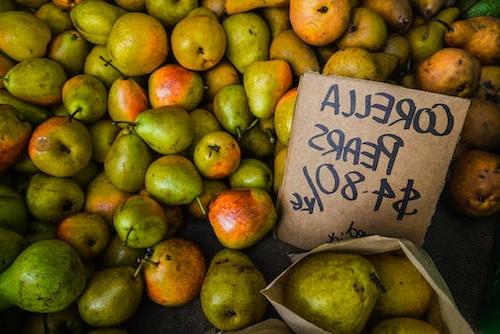 CORELLA
PEARS
$4.80/kg